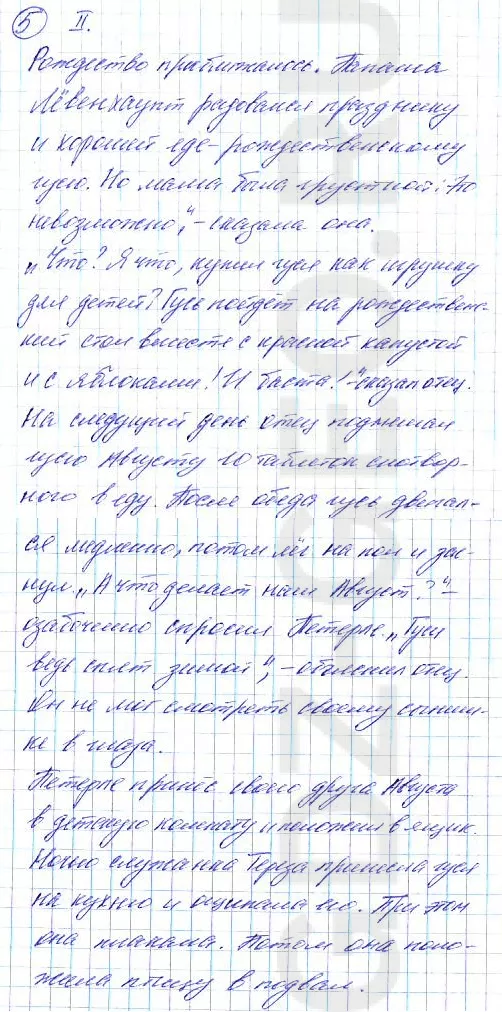 5 II.
Рождество приближалось. Папаша
Лёвенхаупт радовался празднику
и хорошей еде - рождественскому
гусю. Но мама была грустной: „Это
невозможно", - сказала она.
„Что? Я что, купил гуся как игрушку
для детей? Гусь пойдёт на рождествен-
ский стол вместе с красной капустой
и с яблоками! И баста!" - сказал отец.
На следущий день отец подмешал
гусю Августу 10 таблеток снотвор-
ного в еду. После обеда гусь двигал-
ся медленно, потом лёг на пол и зас-
нул. „А что делает наш Август?" -
озабоченно спросил Петерле. „Гуси
ведь спят зимой", - объяснил отец.
Он не мог смотреть своему сыниш-
ке в глаза.
Петерле принёс своего друга Августа
в детскую комнату и положил в ящик.
Ночью служанка Тереза принесла гуся
на кухню и ощипала его. При этом
она плакала. Потом она поло-
жила птицу в подвал.
GDZ-GEO.RU